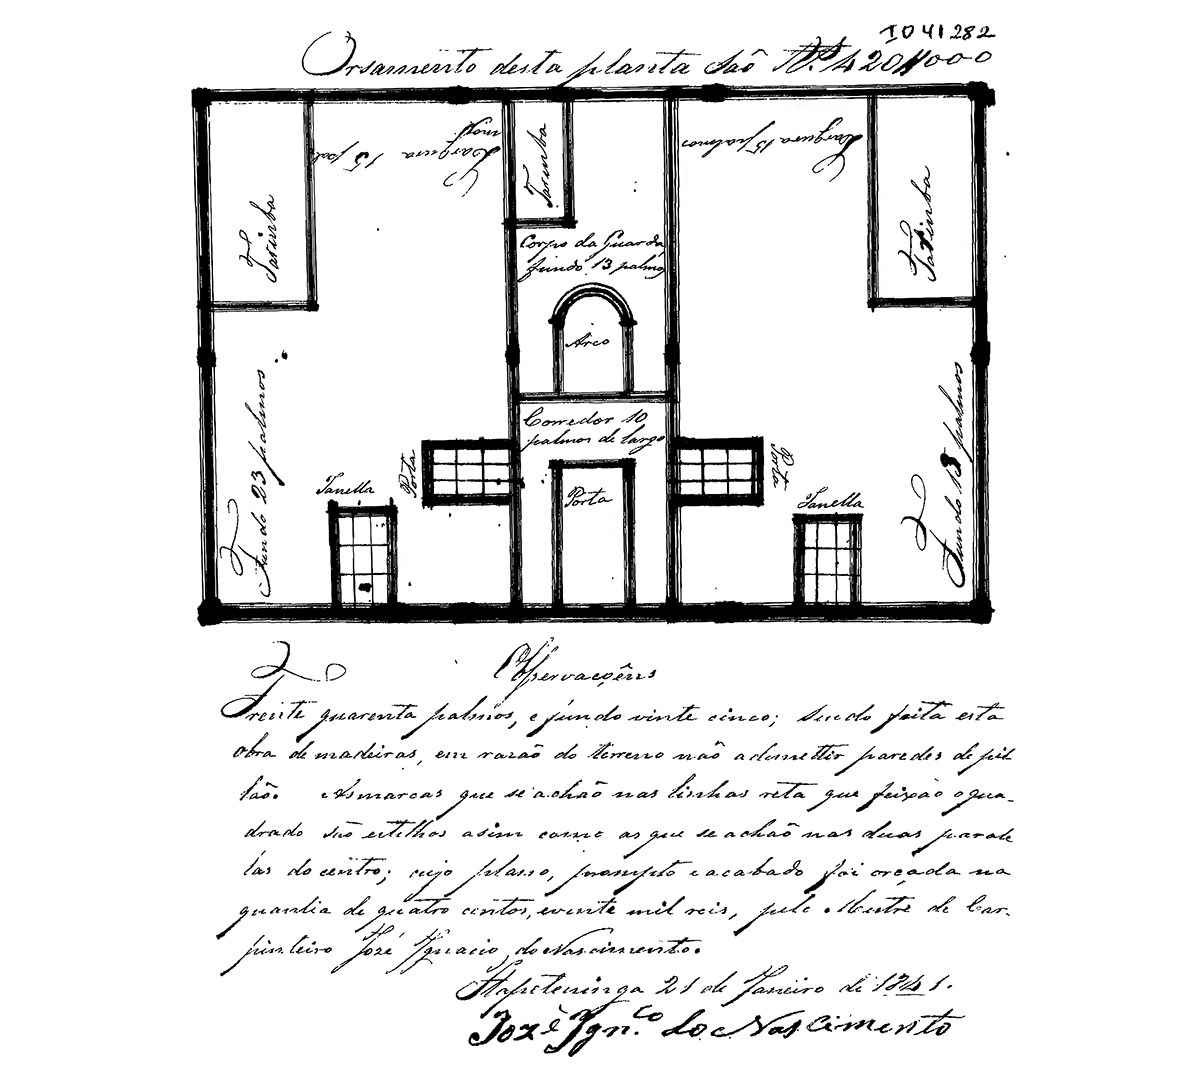 IO 41 282
Orsamento desta planta são Rs. 420$000
Largura 15 pal
mos
Tarimba
Largura 15 palmos
Tarimba
Tarimba
Corpo da Guarda
fundo 13 palmos
Arco
Corredor 10
palmos de largo
Fundo 23 palmos
Janella
Porta
Porta
Porta
Janella
Fundo 13 palmos
Observaçõens
Frente quarenta palmos, e fundo vinte cinco; sendo feita esta
obra de madeiras, em razão do terreno nãoademettir paredes de pil
lão. As marcas que se achão nas linhas reta que feixão o qua-
drado são esteilhos asim como as que se achão nas duas parale
las do centro; cujo plano, prompto e acabado foi orçada na
quantia de quatro centos, evinte mil reis, pelo Mestre de Car-
pinteiro Jozé Ignacio do Nascimento.
Itapeteninga 21 de Janeiro de 1841.
Jozé Ign.co do Nascimento